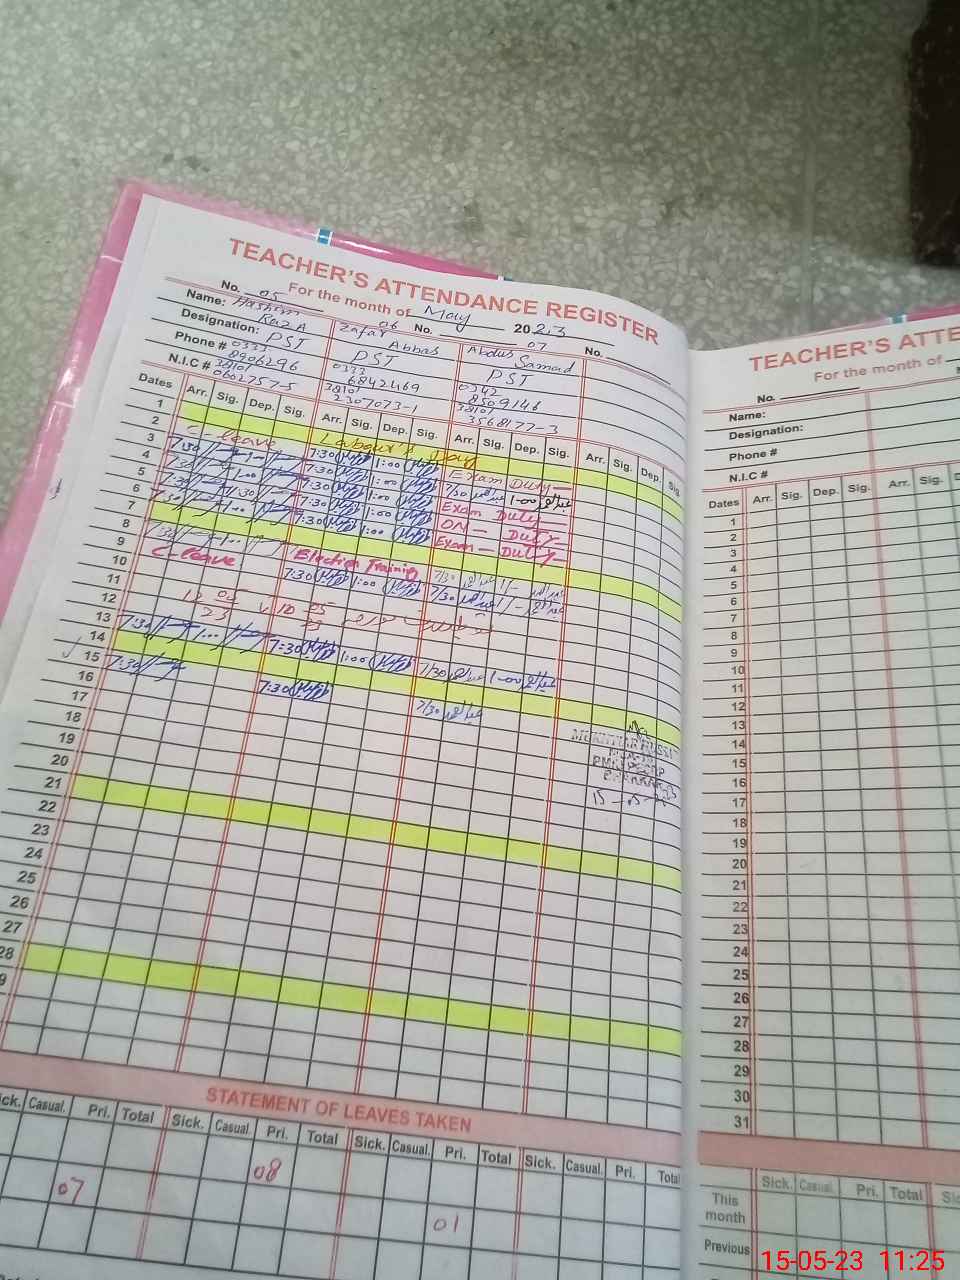 TEACHER'S ATTENDANCE REGISTER
For the month of May 2023
No. 05 No. 06 No. 07 No.
Name: Hashim Raza Zafar Abbas Abdus Samad
Designation: PST PST PST
Phone # 0333 8906296 0333 6842469 0342 8509146
N.I.C # 38101 0602757-5 38101 2307073-1 38101 3568177-3
Dates Arr. Sig. Dep. Sig. Arr. Sig. Dep. Sig. Arr. Sig. Dep. Sig. Arr. Sig. Dep. Sig.
1 Labour's Day
2 C-leave 7:30 1:00 Exam Duty
3 7:30 7:30 1:00 7/30 1-00
4 1:00 7:30 1:00 Exam Duty
5 7:30 1:00 ON - Duty
6 7:30 1:00 7:30 1:00 Exam - Duty
7
8 7:30 1:00 Election Training 7/30
9 C-leave 7:30 1:00 7/30
10
11
12
13 7:30 1:00 7:30 1:00 7/30 1-00
14
15 7:30 7:30 7/30
16
17
18
19
20
21
22
23
24
25
26
27
28
9
STATEMENT OF LEAVES TAKEN
Sick. Casual. Pri. Total Sick. Casual. Pri. Total Sick. Casual. Pri. Total Sick. Casual. Pri. Total
07 08 01
TEACHER'S ATTE
For the month of
No.
Name:
Designation:
Phone #
N.I.C #
Dates Arr. Sig. Dep. Sig. Arr. Sig.
1
2
3
4
5
6
7
8
9
10
11
12
13
14
15
16
17
18
19
20
21
22
23
24
25
26
27
28
29
30
31
Sick. Casual. Pri. Total
This month
Previous
15-05-23 11:25